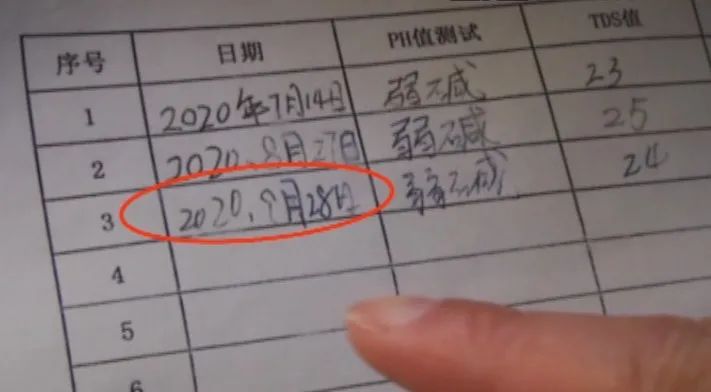 序号 日期 PH值测试 TDS值
1 2020年7月14日 弱碱 23
2 2020.8月27日 弱碱 25
3 2020.9月28日 弱碱 24
4
5
6